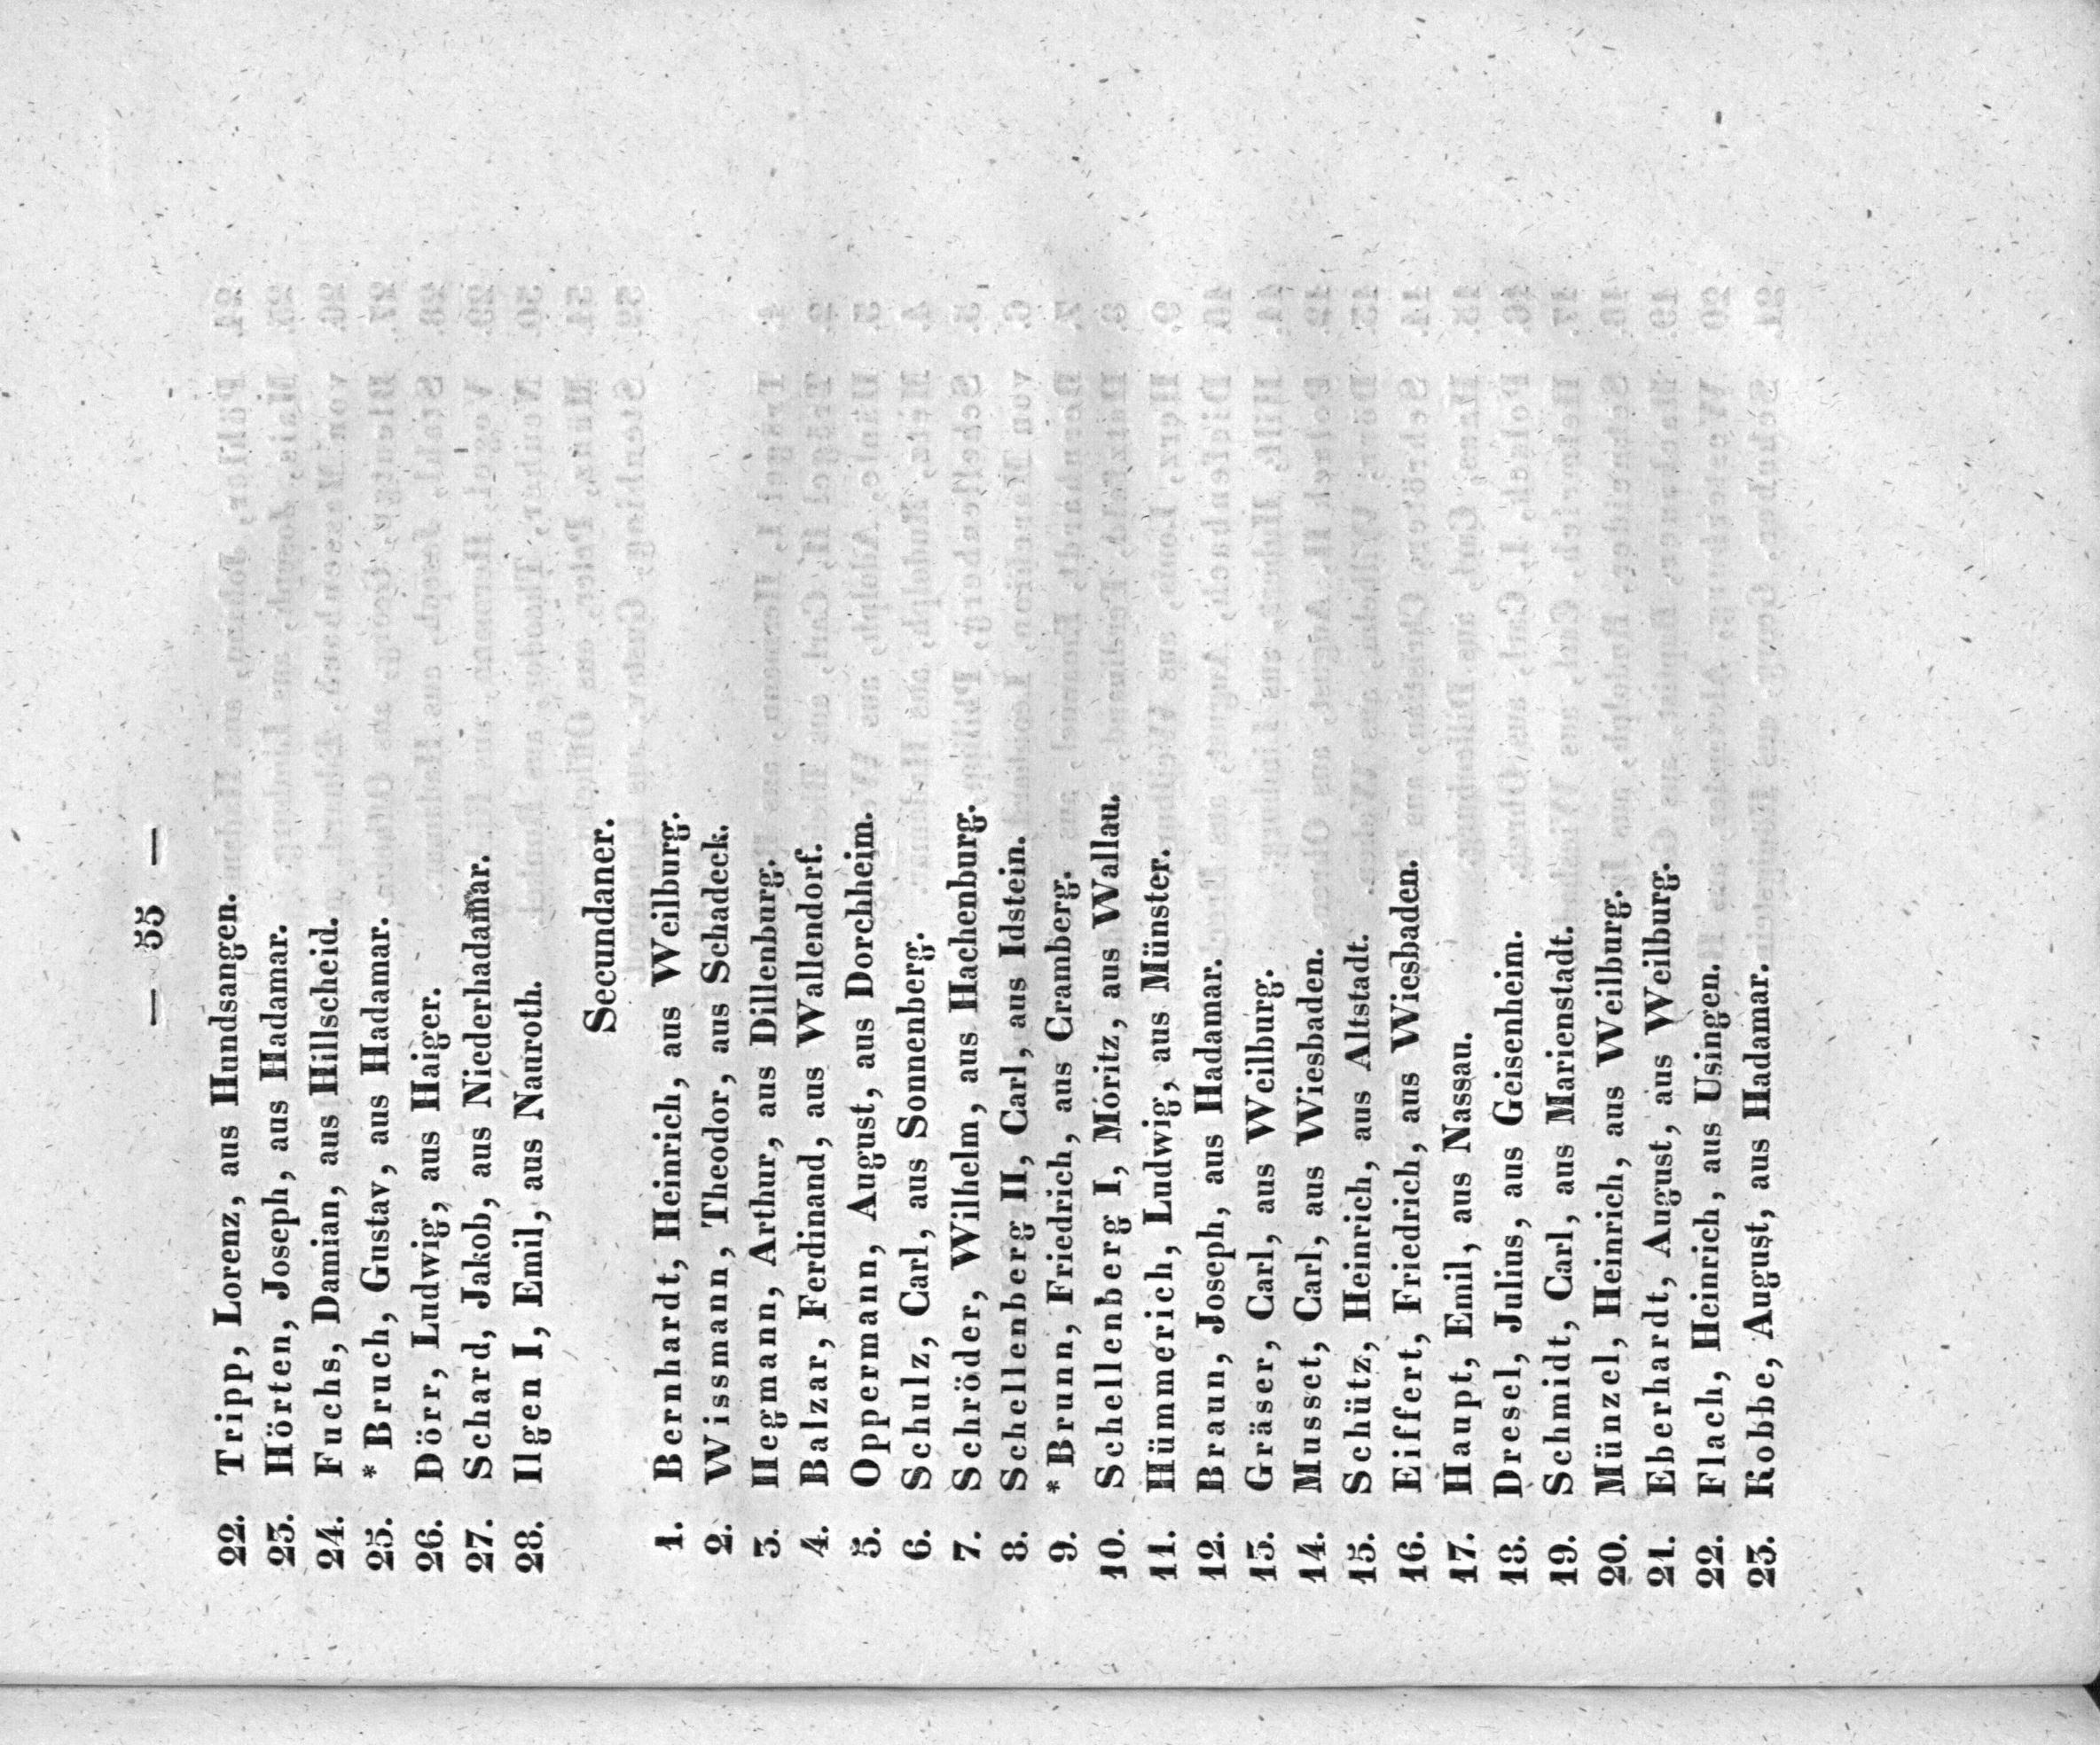 — 55 —
22. Tripp, Lorenz, aus Hundsangen.
23. Hörten, Joseph, aus Hadamar.
24. Fuchs, Damian, aus Hillscheid.
25. *Bruch, Gustav, aus Hadamar.
26. Dörr, Ludwig, aus Haiger.
27. Schard, Jakob, aus Niederhadamar.
28. Ilgen I, Emil, aus Nauroth.
Secundaner.
1. Bernhardt, Heinrich, aus Weilburg.
2. Wissmann, Theodor, aus Schadeck.
3. Hegmann, Arthur, aus Dillenburg.
4. Balzar, Ferdinand, aus Wallendorf.
5. Oppermann, August, aus Dorchheim.
6. Schulz, Carl, aus Sonnenberg.
7. Schröder, Wilhelm, aus Hachenburg.
8. Schellenberg II, Carl, aus Idstein.
9. *Brunn, Friedrich, aus Cramberg.
10. Schellenberg I, Moritz, aus Wallau.
11. Hümmerich, Ludwig, aus Münster.
12. Braun, Joseph, aus Hadamar.
13. Gräser, Carl, aus Weilburg.
14. Musset, Carl, aus Wiesbaden.
15. Schütz, Heinrich, aus Altstadt.
16. Eiffert, Friedrich, aus Wiesbaden.
17. Haupt, Emil, aus Nassau.
18. Dresel, Julius, aus Geisenheim.
19. Schmidt, Carl, aus Marienstadt.
20. Münzel, Heinrich, aus Weilburg.
21. Eberhardt, August, aus Weilburg.
22. Flach, Heinrich, aus Usingen.
23. Kobbe, August, aus Hadamar.